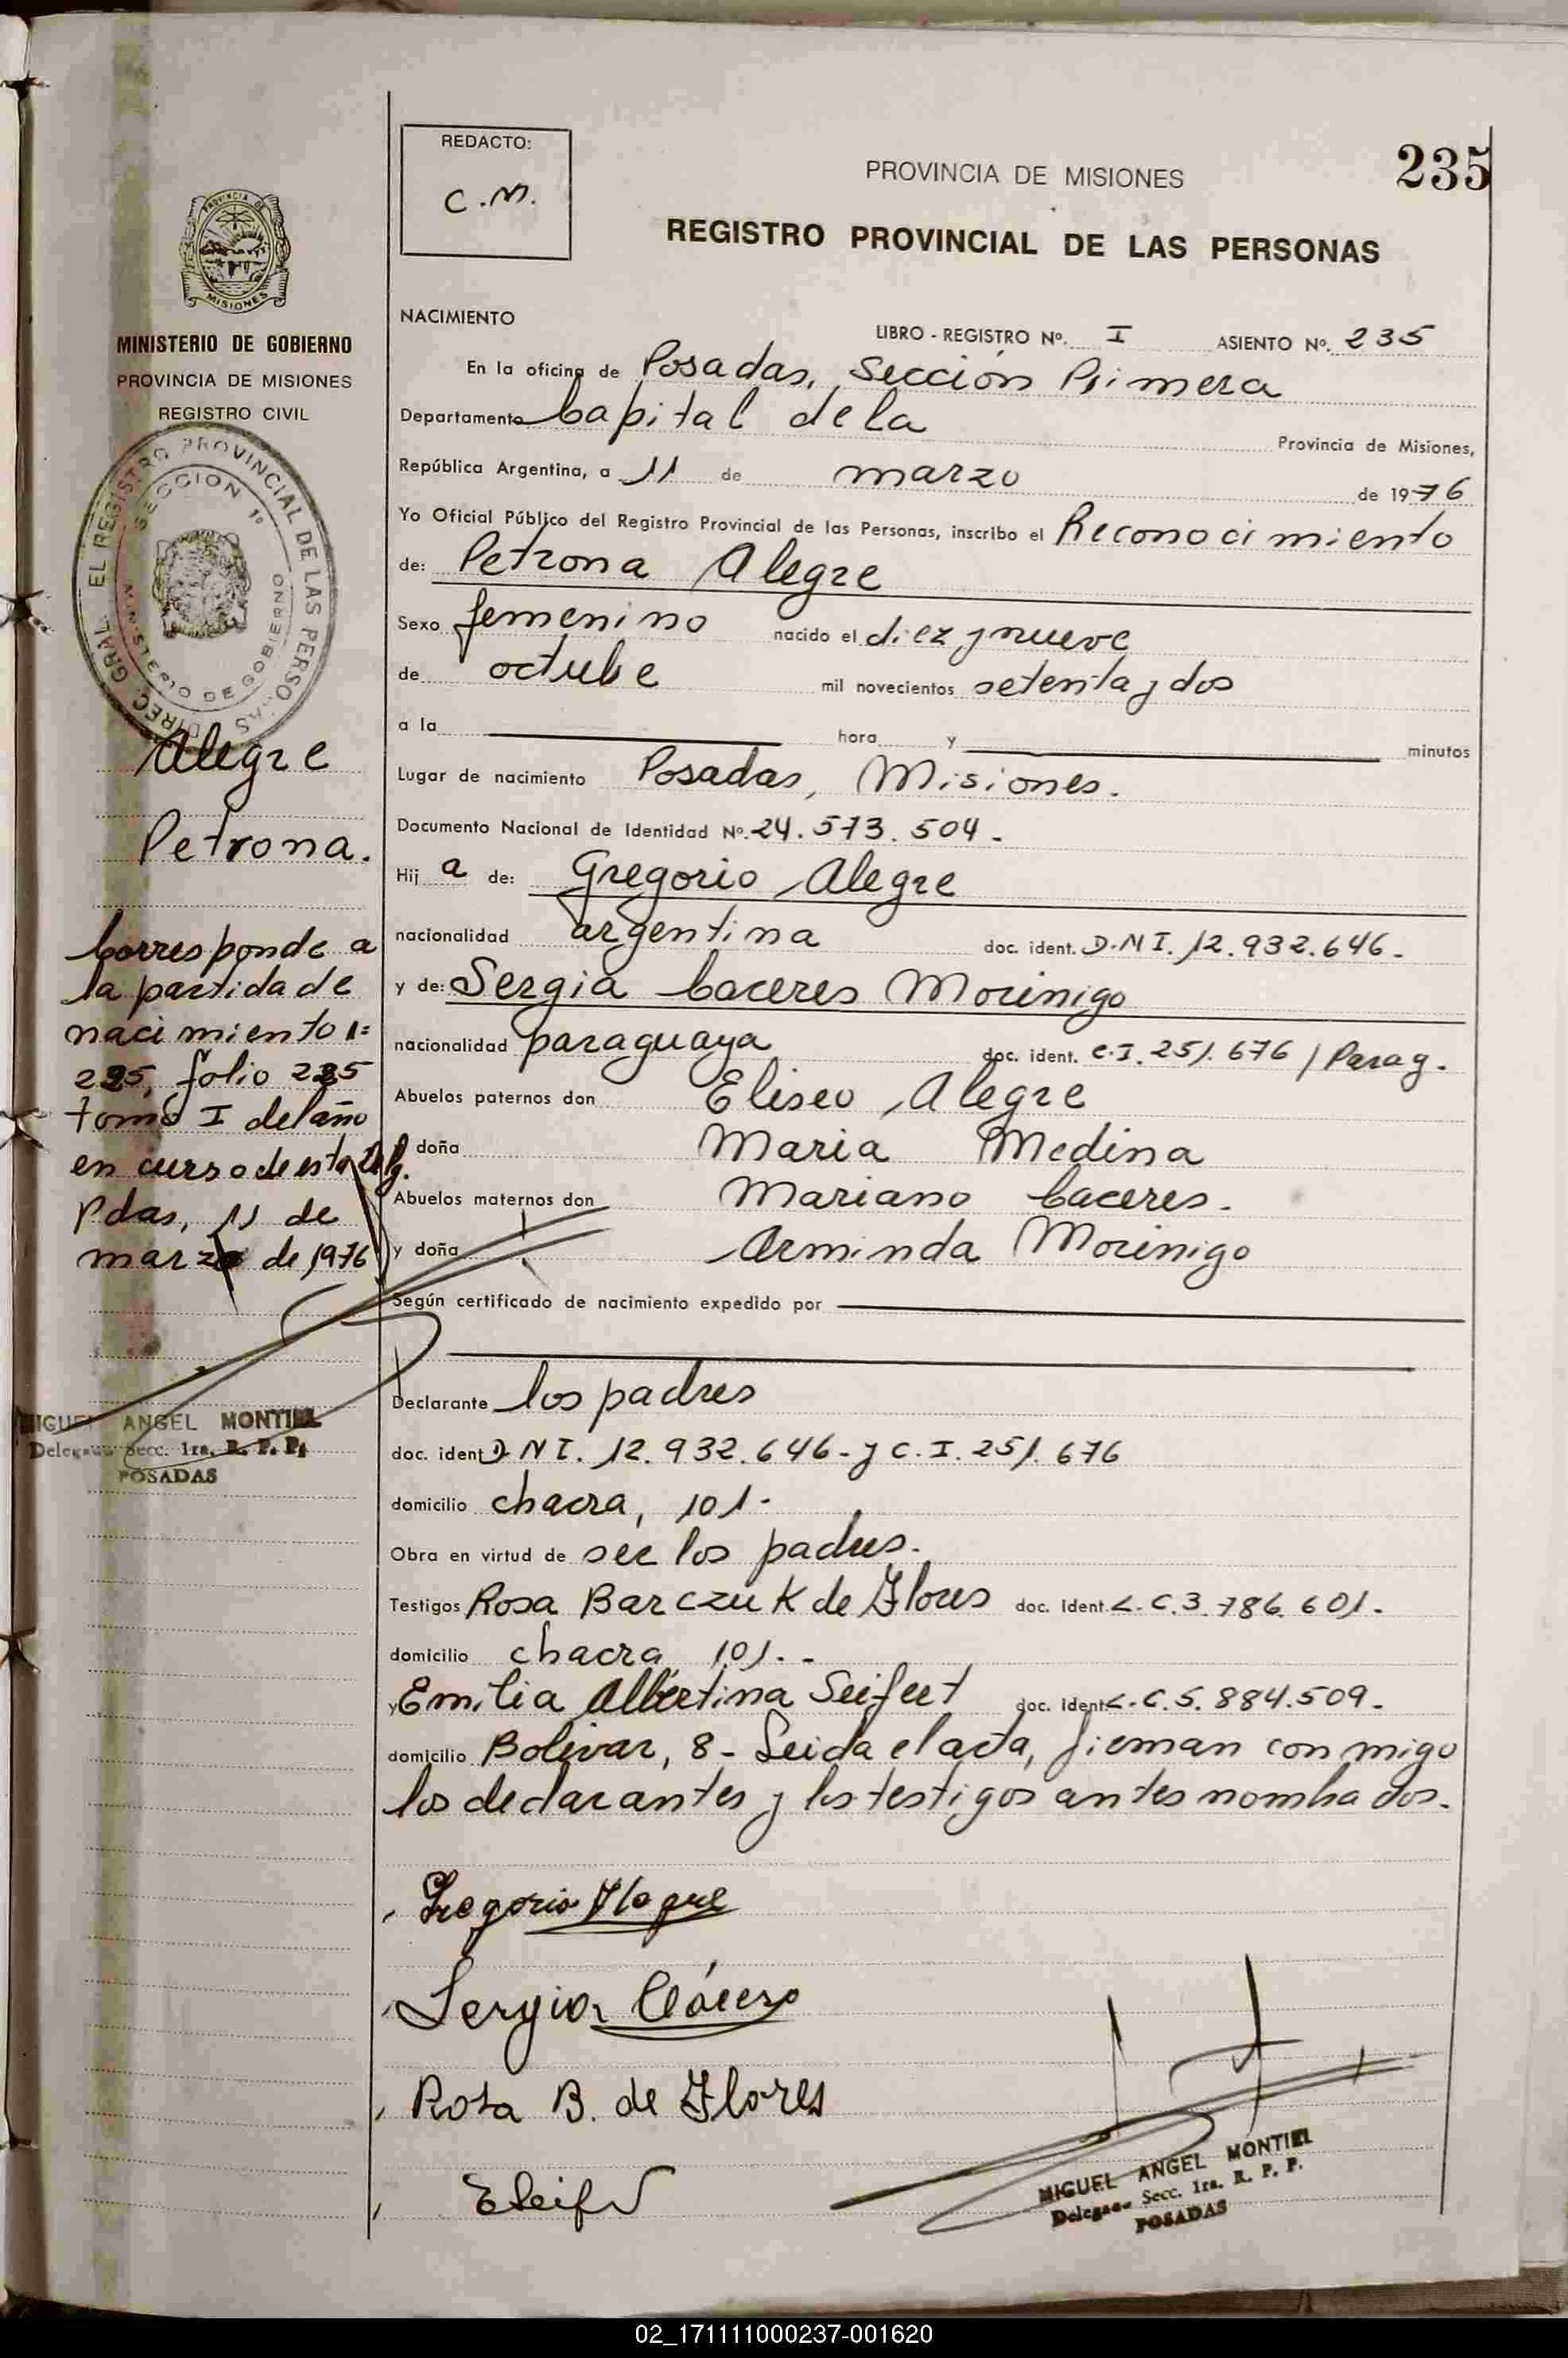 REDACTO:
C.M.
PROVINCIA DE MISIONES
235
REGISTRO PROVINCIAL DE LAS PERSONAS
PROVINCIA DE
MISIONES
MINISTERIO DE GOBIERNO
PROVINCIA DE MISIONES
REGISTRO CIVIL
DIREC. GRAL. EL REGISTRO PROVINCIAL DE LAS PERSONAS
SECCION 1º
MINISTERIO DE GOBIERNO
Alegre
Petrona.
Corresponde a
la partida de
nacimiento
folio
tomo I del año
en curso de esta Delg.
Pdas, 11 de
marzo de 1976
MIGUEL ANGEL MONTIEL
Delegado Secc. 1ra. R. P. P.
POSADAS
NACIMIENTO
LIBRO - REGISTRO Nº. I ASIENTO Nº. 235
En la oficina de Posadas, Sección Primera
Departamento Capital de la Provincia de Misiones,
República Argentina, a 11 de marzo de 1976
Yo Oficial Público del Registro Provincial de las Personas, inscribo el Reconocimiento
de: Petrona Alegre
Sexo femenino nacido el diez y nueve
de octubre mil novecientos setenta y dos
a la hora y minutos
Lugar de nacimiento Posadas, Misiones.
Documento Nacional de Identidad Nº. 24.573.504-
Hij a de: Gregorio Alegre
nacionalidad argentina doc. ident. D.N.I. 12.932.646-
y de: Sergia Caceres Morinigo
nacionalidad paraguaya doc. ident. C.I. 251.676 / Parag.
Abuelos paternos don Eliseo Alegre
y doña Maria Medina
Abuelos maternos don Mariano Caceres.
y doña Arminda Morinigo
Según certificado de nacimiento expedido por
Declarante los padres
doc. ident. D.N.I. 12.932.646- y C.I. 251.676
domicilio chacra, 101-
Obra en virtud de ser los padres.
Testigos Rosa Barczuk de Flores doc. Ident. L.C. 3.786.601.
domicilio chacra 101.-
y Emilia Albertina Seifert doc. Ident. L.C. 5.884.509-
domicilio Bolivar, 8- Leida el acta, firman conmigo
los declarantes y los testigos antes nombrados.
Gregorio Alegre
Sergia Cáceres
Rosa B. de Flores
ESeifert
MIGUEL ANGEL MONTIEL
Delegado Secc. 1ra. R. P. P.
POSADAS
02_171111000237-001620